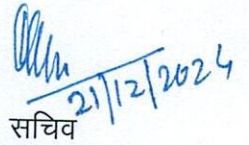 21/12/2024
सचिव